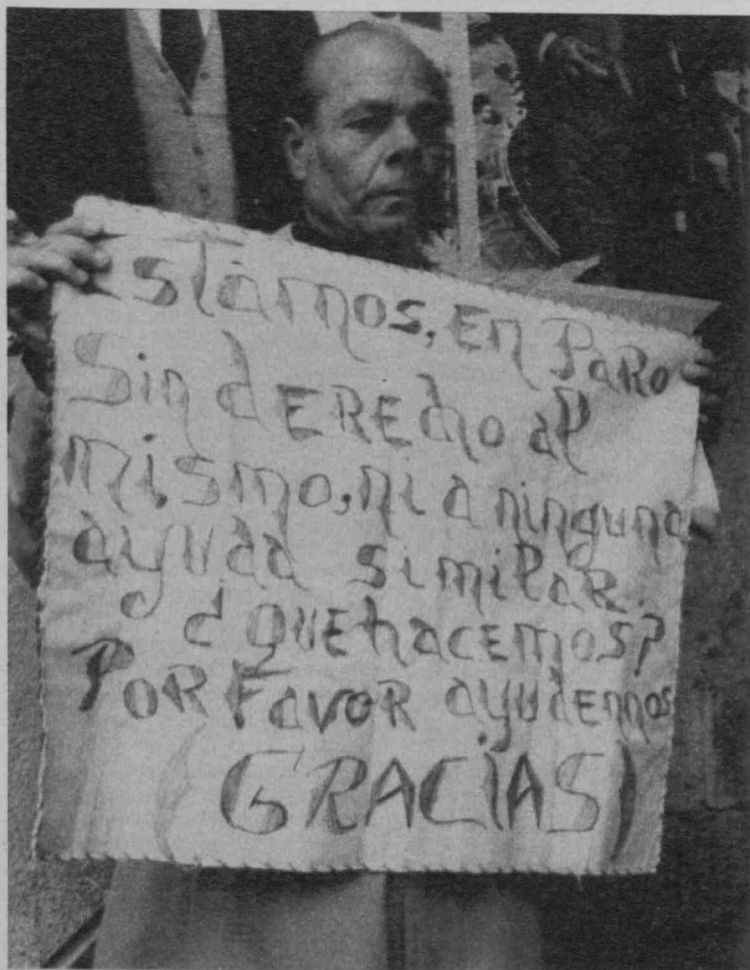 Estámos, En PaRo
Sin dERECho al
mismo, ni a ninguna
ayuda similaR.
¿ QUE hacEmos?
PoR FavoR ayudEnnos
(GRACiAS)